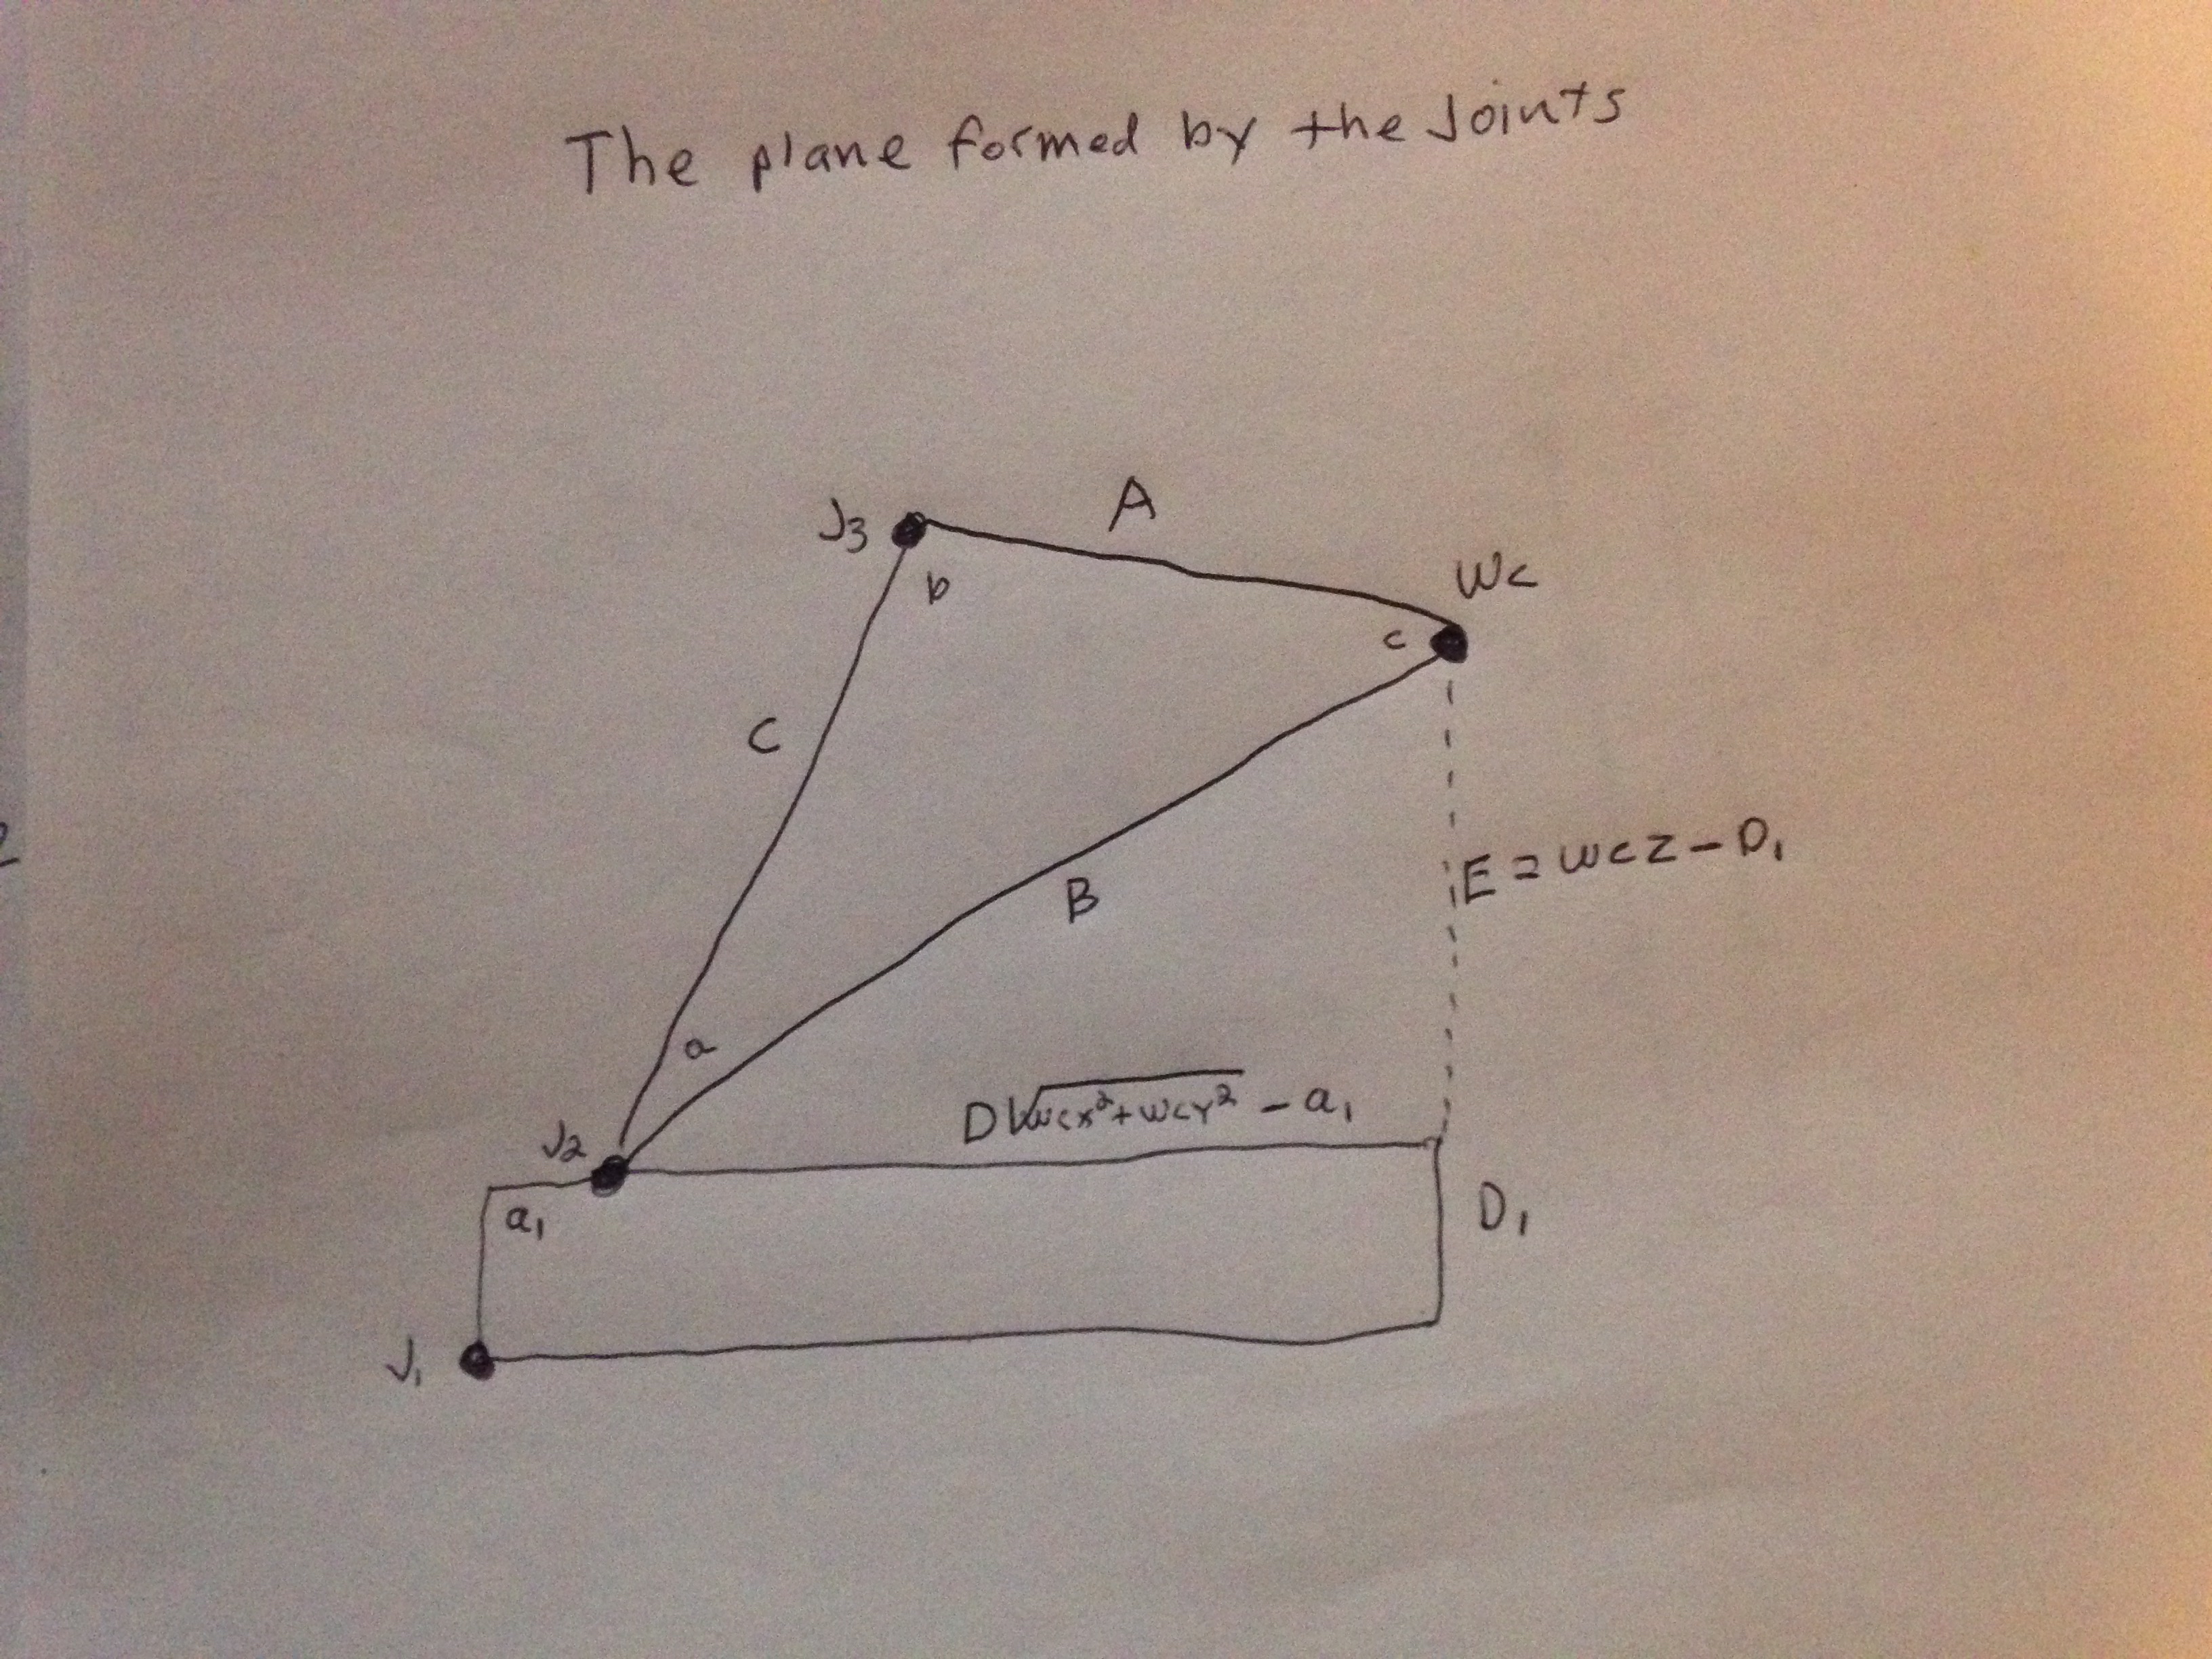 The plane formed by the Joints
J3
A
b
Wc
c
C
E = wcz - D1
B
a
D √wcx²+wcy² - a1
J2
a1
D1
J1